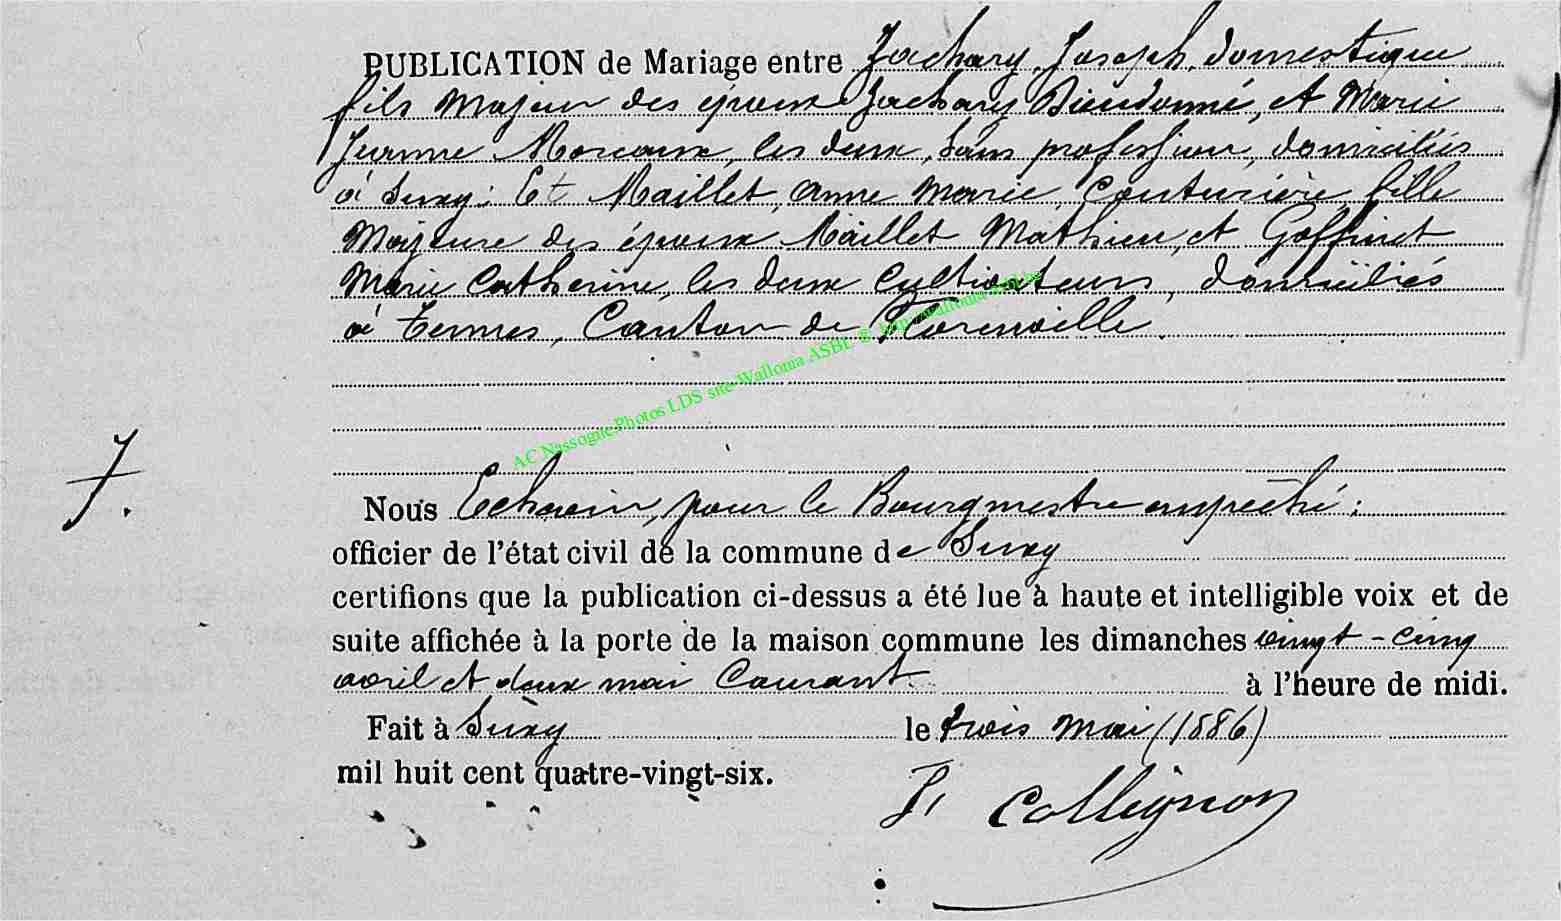 PUBLICATION de Mariage entre Zachary, Joseph, domestique
fils Majeur des époux Zachary Dieudonné, et Marie
Jeanne Morcaux, les deux, sans profession, domiciliés
à Suxy; Et Maillet, Anne Marie, Couturière fille
Majeure des époux Maillet Mathieu, et Goffinet
Marie Catherine, les deux Cultivateurs, domiciliés
à Termes, Canton de Florenville.
AC Nassogne Photos LDS site Wallonia ASBL ®
7.
Nous Echevin, pour le Bourgmestre empêché;
officier de l'état civil de la commune de Suxy
certifions que la publication ci-dessus a été lue à haute et intelligible voix et de
suite affichée à la porte de la maison commune les dimanches vingt-cinq
avril et deux mai Courant à l'heure de midi.
Fait à Suxy le trois mai (1886)
mil huit cent quatre-vingt-six.
Collignon